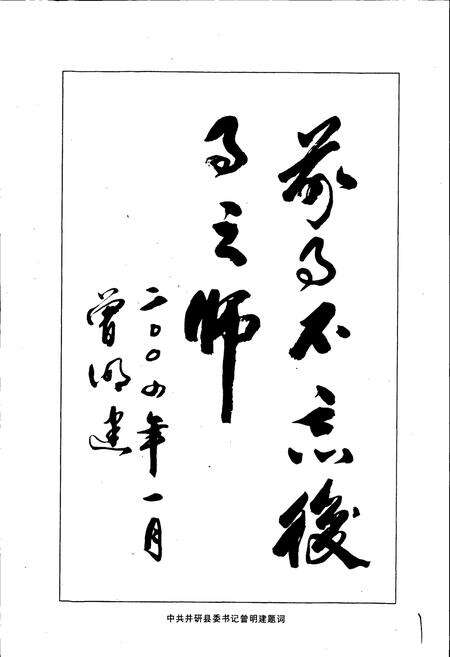 前事不忘後
事之师
二〇〇四年一月
曾明建
中共井研县委书记曾明建题词